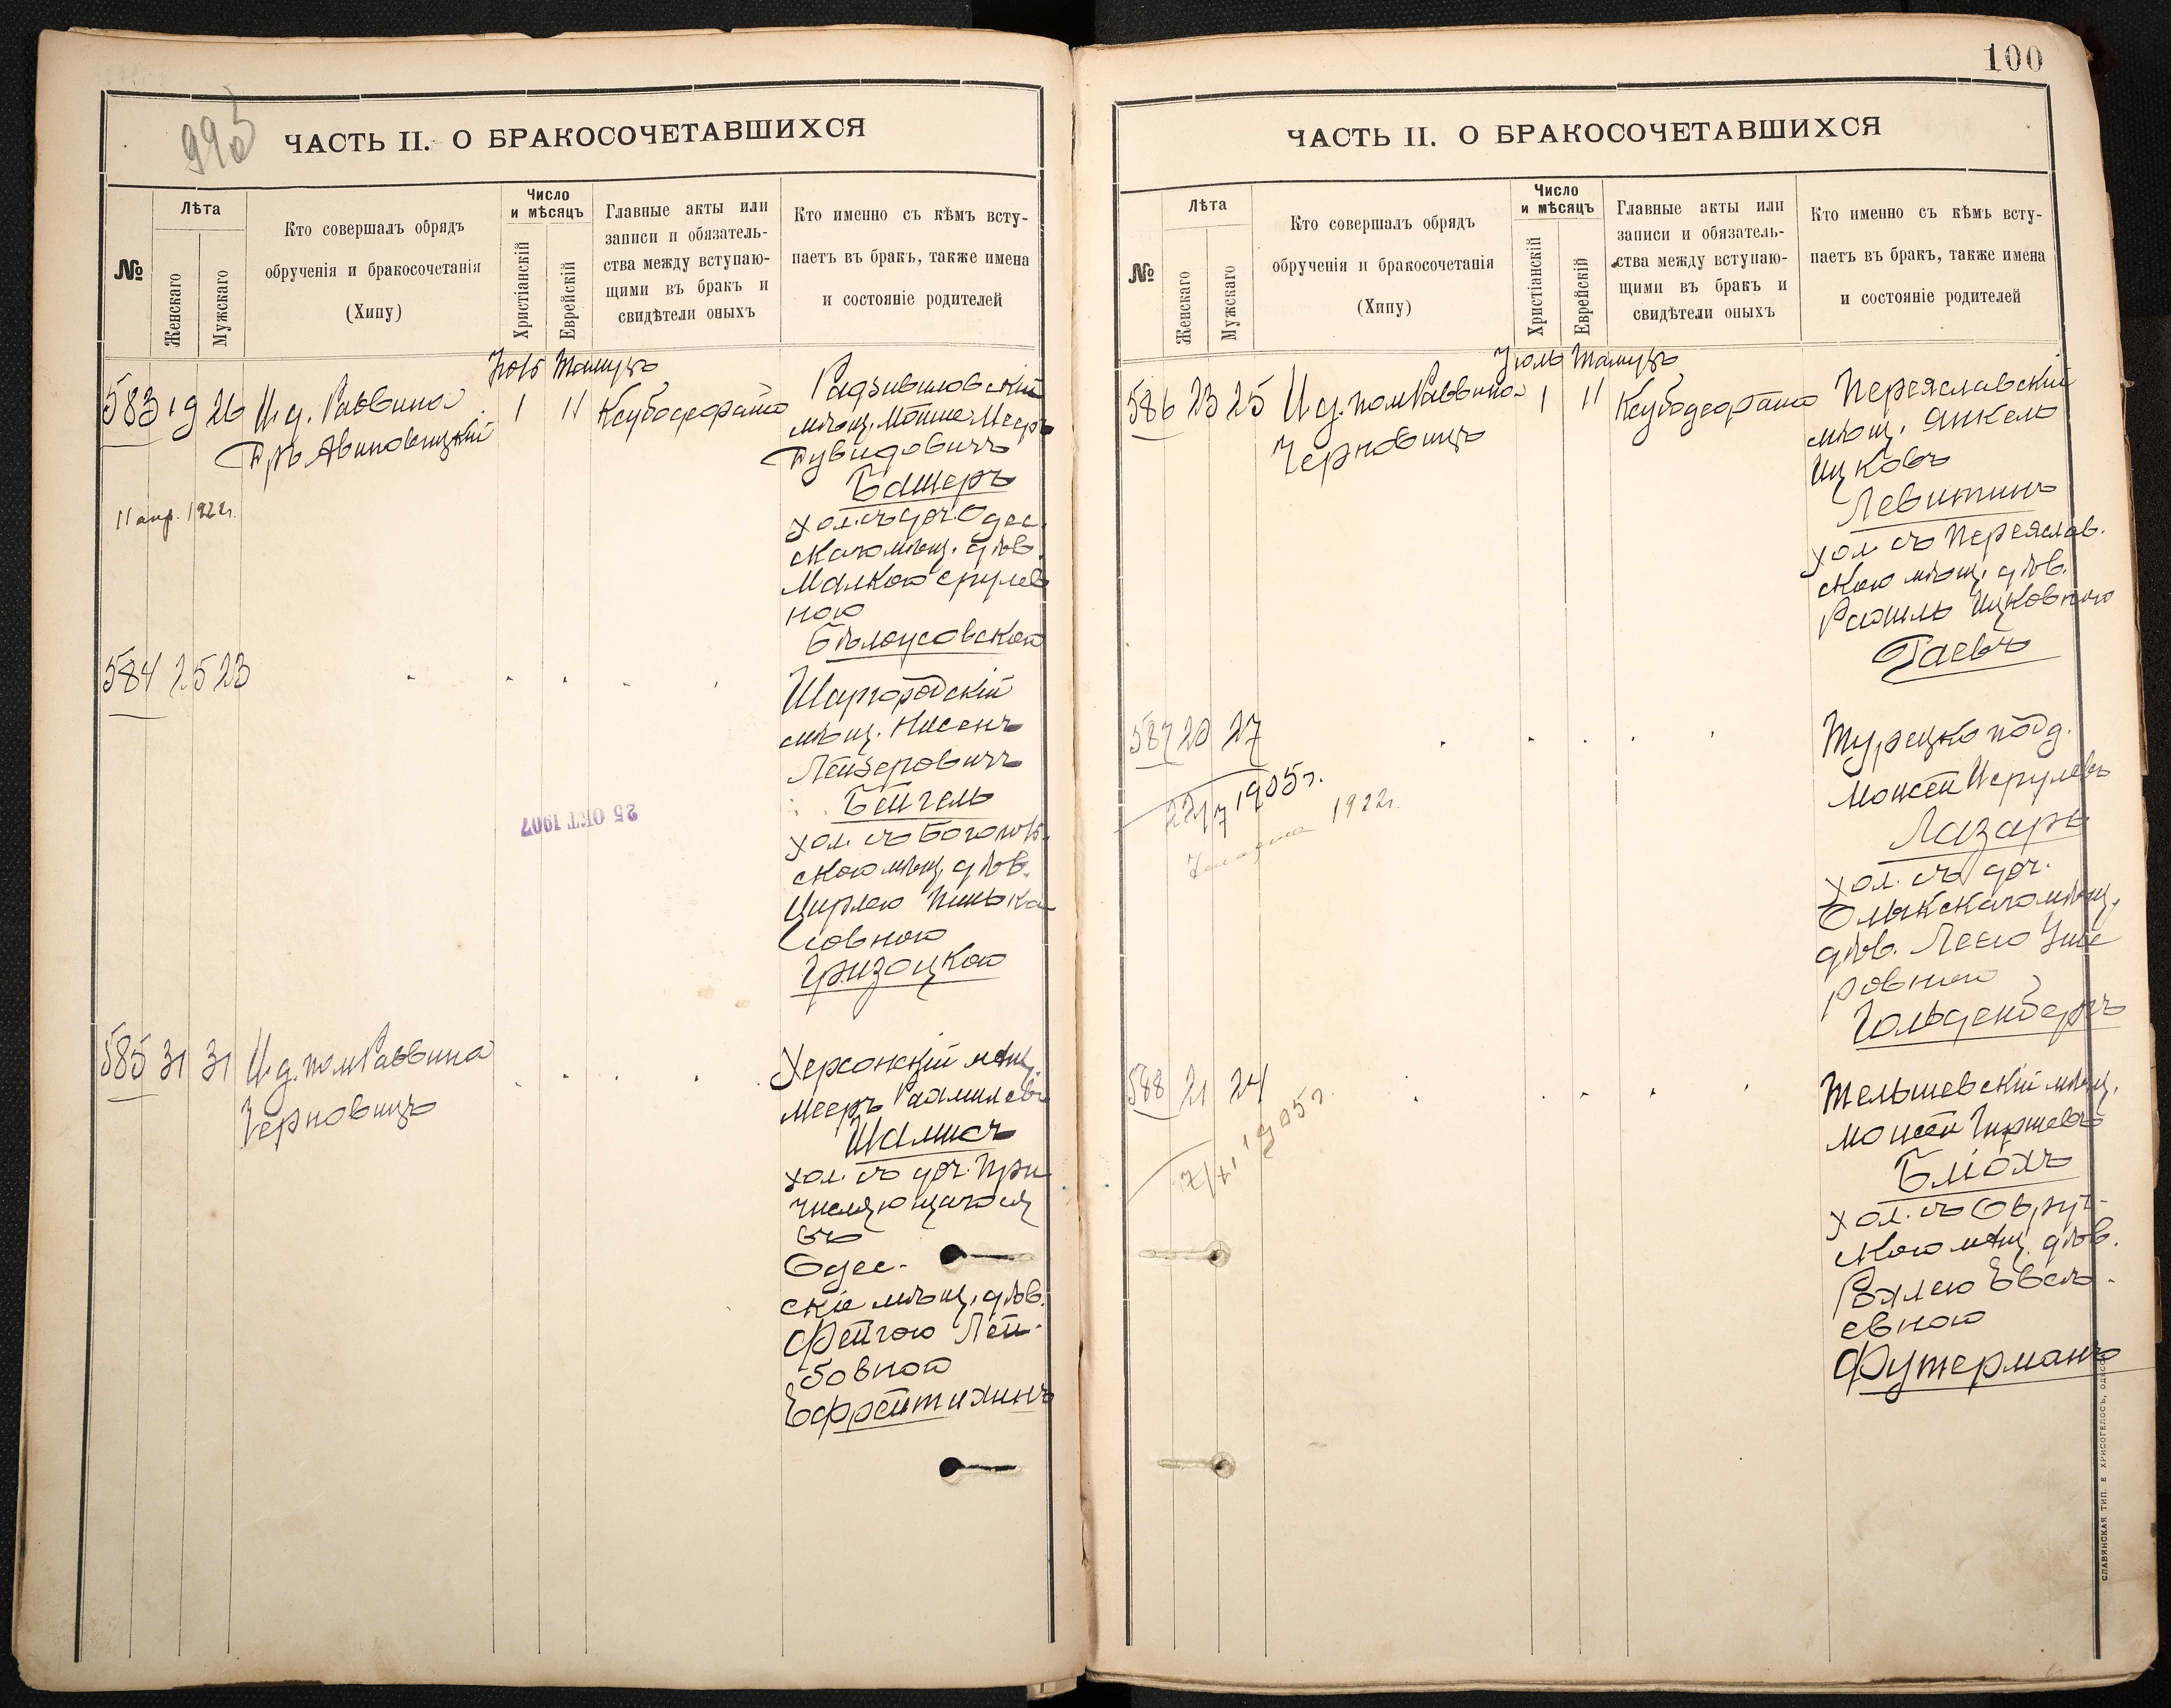 995
ЧАСТЬ II. О БРАКОСОЧЕТАВШИХСЯ
№
Лѣта
Женскаго
Мужскаго
Кто совершалъ обрядъ
обрученія и бракосочетанія
(Хипу)
Число
и мѣсяцъ
Христіанскій
Еврейскій
Главные акты или
записи и обязатель-
ства между вступаю-
щими въ бракъ и
свидѣтели оныхъ
Кто именно съ кѣмъ всту-
паетъ въ бракъ, также имена
и состояніе родителей
Тамузъ
583 19 26 И. д. Раввина
Авиновицкій
1 11
Радзивиловскій
мѣщ. Мошке Мееръ
Дувидовичъ
Башеръ
хол. съ доч. Одес.
скаго мѣщ. дѣв.
Малкою Срулев
ною
Бѣлоусовскою
11 апр. 1922г.
584 25 23
Шаргородскій
мѣщ. Нисенъ
Лейзеровичъ
Бейгель
хол. съ
скою мѣщ. дѣв.
Цирлею Пинька
совною
Гризоцкою
25 ОКТ 1907
585 31 31 И. д. пом Раввина
Черновицъ
Херсонскій мѣщ.
Мееръ Рахмилевъ
Шамисъ
хол. съ доч. При
числяющагося
въ
Одес.
скіе мѣщ. дѣв.
Фейгою Лей-
бовною
100
ЧАСТЬ II. О БРАКОСОЧЕТАВШИХСЯ
№
Лѣта
Женскаго
Мужскаго
Кто совершалъ обрядъ
обрученія и бракосочетанія
(Хипу)
Число
и мѣсяцъ
Христіанскій
Еврейскій
Главные акты или
записи и обязатель-
ства между вступаю-
щими въ бракъ и
свидѣтели оныхъ
Кто именно съ кѣмъ всту-
паетъ въ бракъ, также имена
и состояніе родителей
Іюль Тамузъ
586 23 25 И. д. пом Раввина
Черновицъ
1 11
Переяславскій
мѣщ. Янкель
Ицковъ
Левитинъ
хол. съ Переяслав.
скою мѣщ. дѣв.
Рахиль Ицковною
Гаевъ
587 20 27
Турецко подд.
Моисей Исрулевъ
Лазарь
хол. съ доч.
Олыкскаго мѣщ.
дѣв. Леею Уше
ровною
Гольденбергъ
22/7 1905г.
1922г.
588 21 24
Тельшевскій мѣщ.
Моисей Гиршевъ
Бліохъ
хол. съ Овруч-
скою мѣщ. дѣв.
Рохлею
евною
Футерманъ
1905г.
СЛАВЯНСКАЯ ТИП. Е. ХРИСОГЕЛОСЪ, ОДЕССА